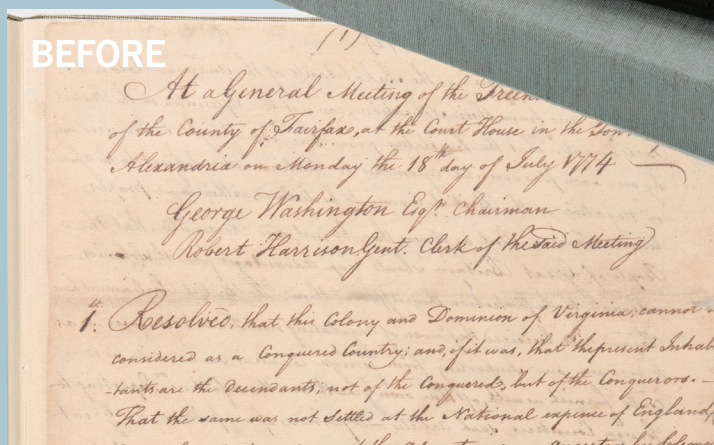 BEFORE
(1)
At a General Meeting of the
of the County of Fairfax, at the Court House in the
Alexandria on Monday the 18th day of July 1774
George Washington Esqr. Chairman
Robert Harrison Gent. Clerk of the said Meeting
1st. Resolved, that this Colony and Dominion of Virginia, cannot
considered as a Conquered Country; and, if it was, that the present Inhab
-tants are the Descendants, not of the Conquered, but of the Conquerors. —
That the same was not settled at the National expence of England,